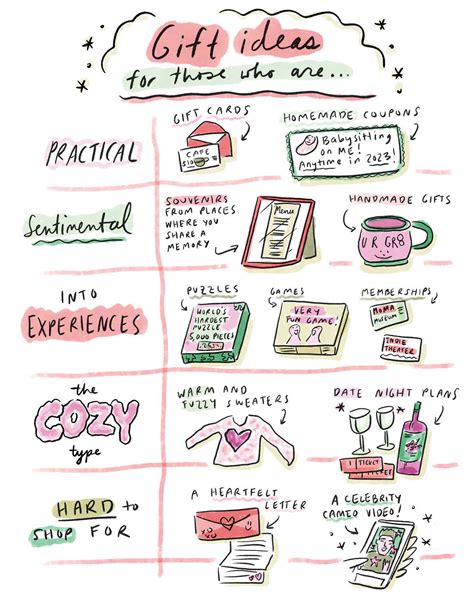 Gift ideas
for those who are...
PRACTICAL
GIFT CARDS
CAFE
$10
HOMEMADE COUPONS
Babysitting
on ME!
Anytime in 2023!
Sentimental
SOUVENIRS
FROM PLACES
WHERE YOU
SHARE A
MEMORY
Menu
HANDMADE GIFTS
U R GR8
INTO
EXPERIENCES
PUZZLES
WORLD'S
HARDEST
PUZZLE
5,000 PIECES
GAMES
VERY
FUN GAME!
MEMBERSHIPS
MOMA
MUSEUM
INDIE
THEATER
the
COZY
type
WARM AND
FUZZY SWEATERS
DATE NIGHT PLANS
1 TICKET
HARD to
SHOP FOR
A HEARTFELT
LETTER
A CELEBRITY
CAMEO VIDEO!